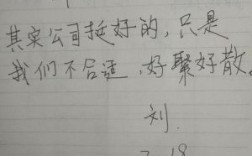 其实公司挺好的，只是
我们不合适，好聚好散。
刘